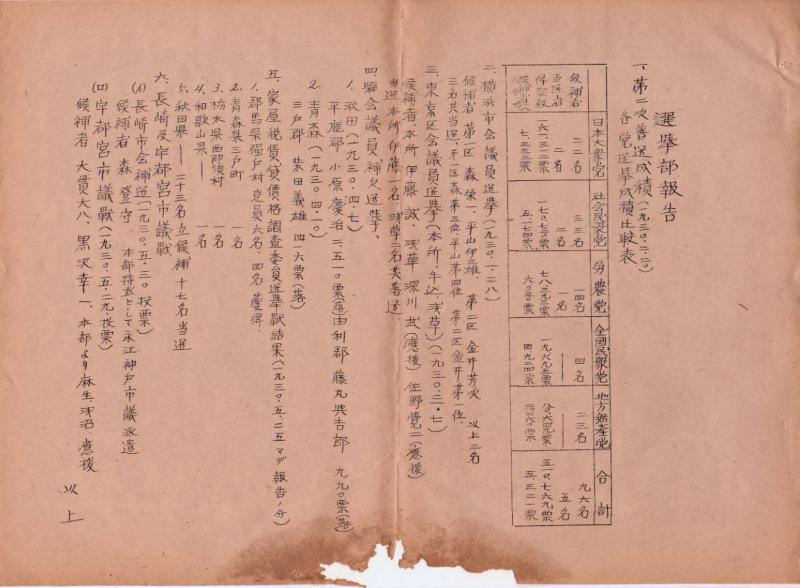 選挙部報告
一、第二次普選ノ成績(一九三〇・二・二〇)
各党選挙成績比較表
候補者
当選者
得票数
日本大衆党
二名
社会民衆党
三三名
二名
労農党
一四名
一名
全国民衆党
四名
地方無産党
二三名
合計
九六名
五名
二、横浜市会議員選挙(一九三〇・一・二八)
候補者 第一区 森栄一、平山伊三雄、第二区 金井芳次 以上三名
三名共当選、第一区森第三位、平山第四位 第二区金井第一位、
三、東京区会議員選挙(本所、牛込、浅草)(一九三〇・三・七)
候補者、本所 伊藤 誠、浅草 深川 武(応援) 佐野 (応援)
当選 本所 伊藤一名、浅草二名共落選、
四、縣会議員補欠選挙、
1、秋田(一九三〇・四・七)
平鹿郡 小原慶治 二、五一〇票(落) 由利郡 藤丸興吉郎 九九〇票(落)
2、青森(一九三〇・四・一〇)
三戸郡 柴田義雄 四一六票(落)
五、家屋税賃貸價格調査委員選挙戦結果(一九三〇・五・二五マデ報告ノ分)
1、群馬県強戸村 定員六名、四名獲得
2、青森県三戸町 一名
3、栃木県西那須村 一名
4、和歌山県 一名
5、秋田県 二十三名立候補 十七名当選
六、長崎及宇都宮市議戦
(イ)長崎市会補選(一九三〇・五・三〇投票)
候補者 森 登守 本部特派として永江神戸市議派遣
(ロ)宇都宮市議戦(一九三〇・五・二九投票)
候補者 大貫大八、黒沢幸一、本部より麻生、浅沼応援
以上